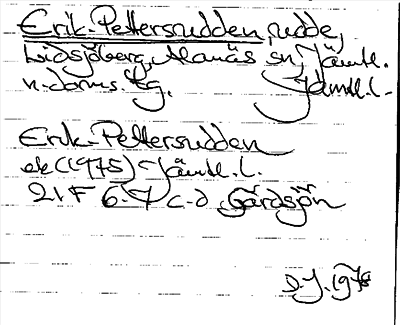 Erik-Pettersudden, udde,
Lidsjöberg, Alanäs sn, Jämtl.
n. doms. tg. Jämtl. l.
Erik-Pettersudden
ek (1975) Jämtl. l.
21F 6-7 c-d, Gårdsjön
D.J. 1978